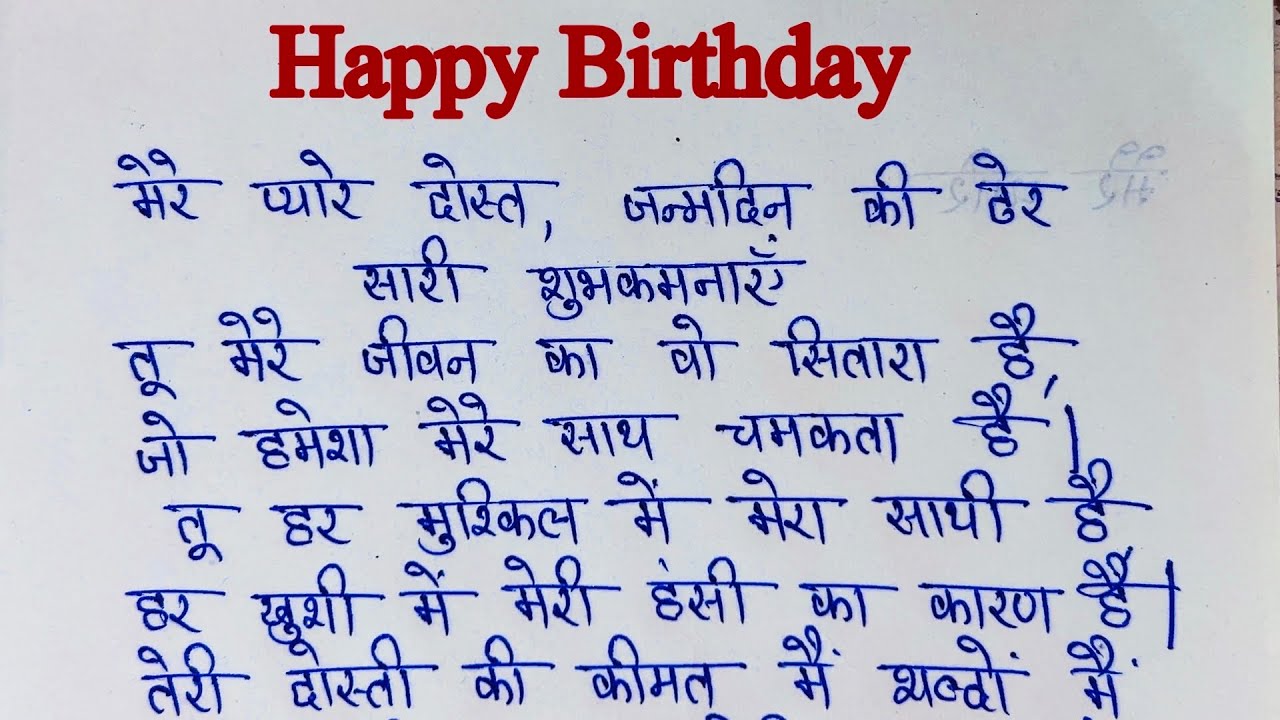 Happy Birthday
मेरे प्यारे दोस्त, जन्मदिन की ढेर
सारी शुभकमनाएँ
तू मेरे जीवन का वो सितारा है,
जो हमेशा मेरे साथ चमकता है।
तू हर मुश्किल में मेरा साथी है
हर खुशी में मेरी हंसी का कारण है।
तेरी दोस्ती की कीमत मैं शब्दों मैं